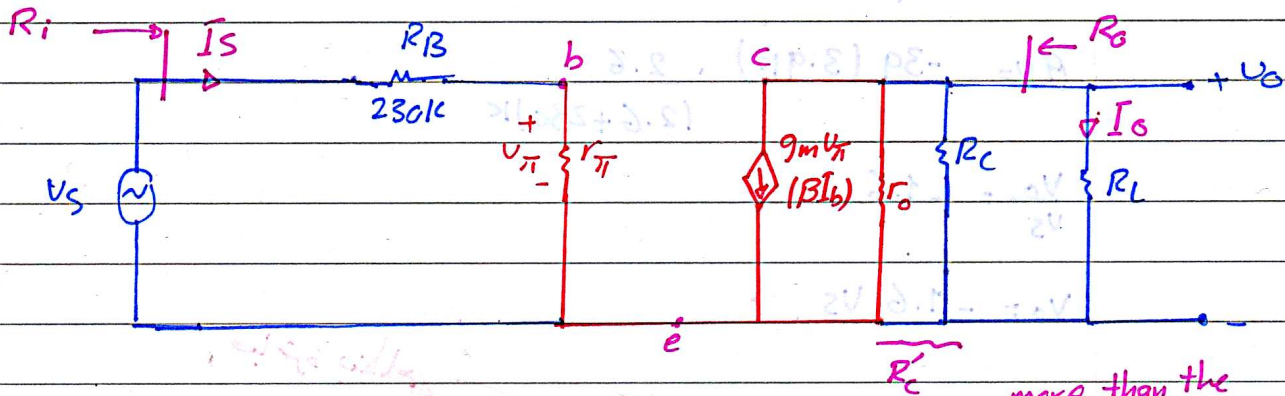 Ri Is RB b c Ro + vo
230k
+ vπ - rπ
gmvπ
(βIb)
ro Rc Io RL
vs
e -
R'c
more than the